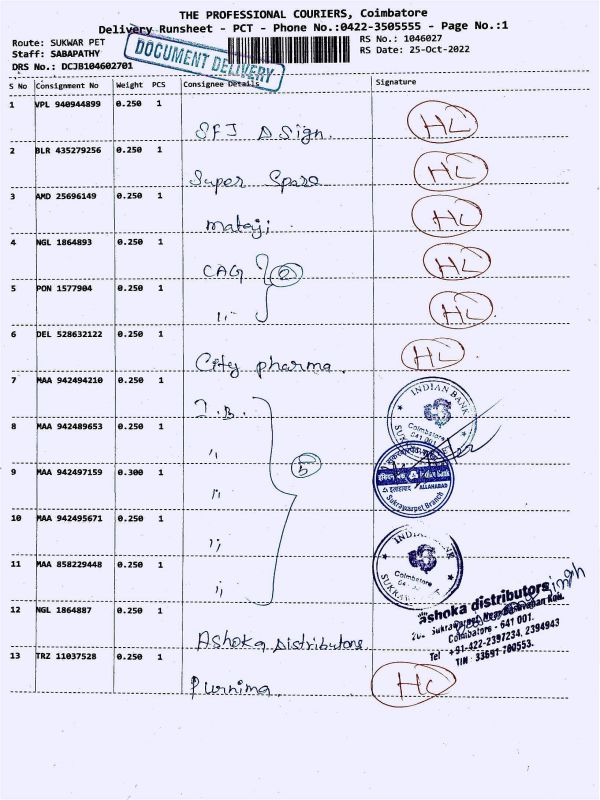 THE PROFESSIONAL COURIERS, Coimbatore
Delivery Runsheet - PCT - Phone No.:0422-3505555 - Page No.:1
Route: SUKWAR PET
RS No.: 1046027
Staff: SABAPATHY
RS Date: 25-Oct-2022
DRS No.: DCJB104602701
DOCUMENT DELIVERY
S No Consignment No Weight PCS Consignee Details Signature
1 VPL 940944899 0.250 1
SFJ DSign. HL
2 BLR 435279256 0.250 1
Super Spare HL
3 AMD 25696149 0.250 1
mataji HL
4 NGL 1864893 0.250 1
CAG 2 HL
5 PON 1577904 0.250 1
,,- HL
6 DEL 528632122 0.250 1
City pharma. HL
7 MAA 942494210 0.250 1
I.B.
INDIAN BANK
Coimbatore
641 001
8 MAA 942489653 0.250 1
,,
5
इंडियन बैंक Indian Bank
इलाहाबाद ALLAHABAD
Sukrawarpet Branch
9 MAA 942497159 0.300 1
,,
10 MAA 942495671 0.250 1
,,
Coimbatore
11 MAA 858229448 0.250 1
,,
12 NGL 1864887 0.250 1
Ashoka Distributors
ashoka distributors
Coimbatore - 641 001.
Tel : +91-422-2397234, 2394943
13 TRZ 11037528 0.250 1
Purnima HL